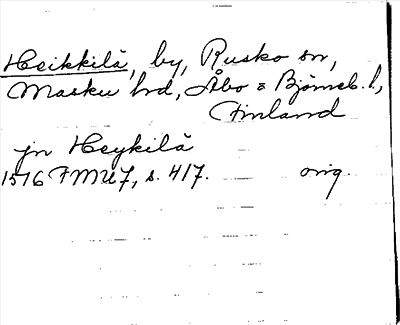 Heikkilä, by, Rusko sn,
Masku hd, Åbo o Björneb. l,
Finland
jn Heykilä
1516 FMU 7, s. 417. orig.